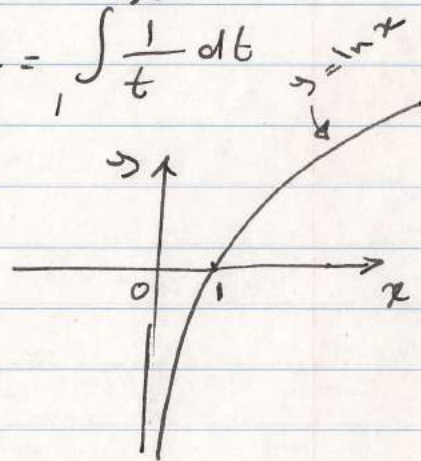 = ∫ 1/t dt
1
y = ln x
y
0 1 x